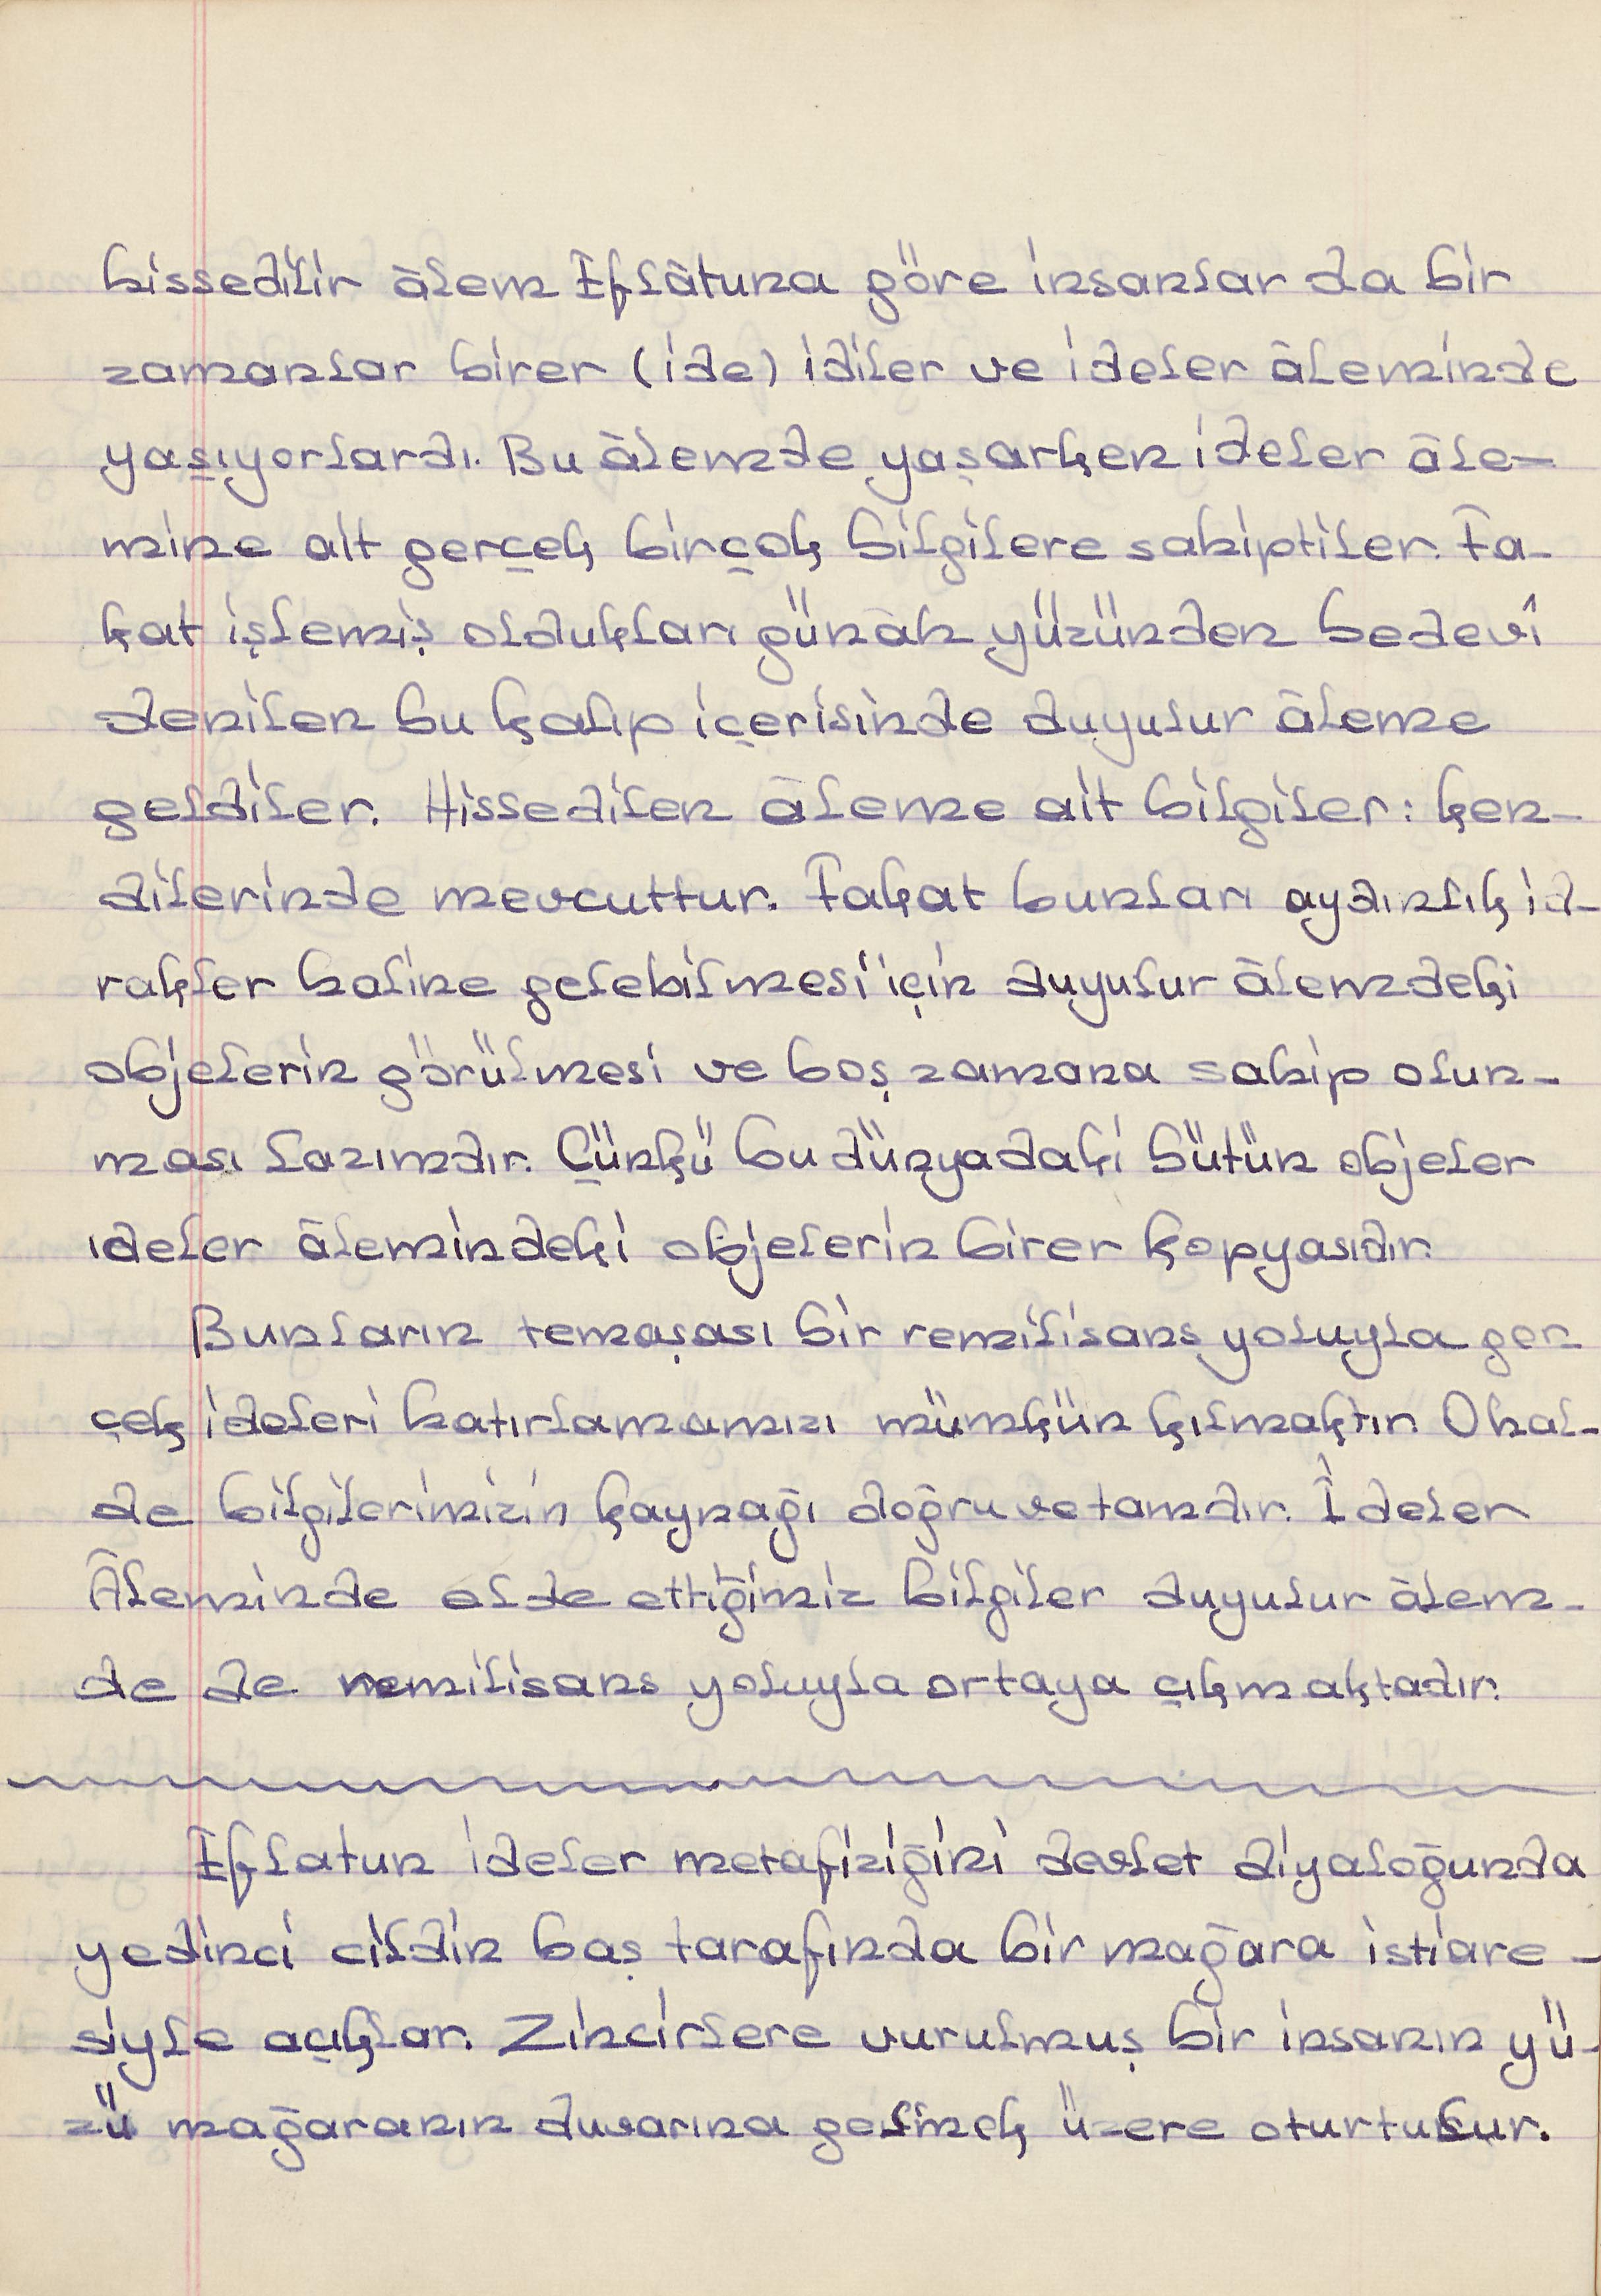 hissedilir âlem Eflâtuna göre insanlar da bir
zamanlar birer (ide) idiler ve ideler âleminde
yaşıyorlardı. Bu âlemde yaşarken ideler âle-
mine ait gerçek birçok bilgilere sahiptiler. Fa-
kat işlemiş oldukları günâh yüzünden bedevî
denilen bu kalıp içerisinde duyulur âleme
geldiler. Hissedilen âleme ait bilgiler: ken-
dilerinde mevcuttur. Fakat bunları aydınlık id-
rakler haline gelebilmesi için duyulur âlemdeki
objelerin görülmesi ve boş zamana sahip olun-
ması lazımdır. Çünkü bu dünyadaki bütün objeler
ideler âlemindeki objelerin birer kopyasıdır.
Bunların temaşası bir remilisans yoluyla ger-
çek ideleri hatırlamamızı mümkün kılmaktır. Ohal-
de bilgilerimizin kaynağı doğru ve tamdır. İdeler
Âleminde elde ettiğimiz bilgiler duyulur âlem-
de de remilisans yoluyla ortaya çıkmaktadır.
Eflatun ideler metafiziğini devlet diyaloğunda
yedinci cildin baş tarafında bir mağara istiare-
siyle açıklar. Zincirlere vurulmuş bir insanın yü-
zü mağaranın duvarına gelmek üzere oturtulur.